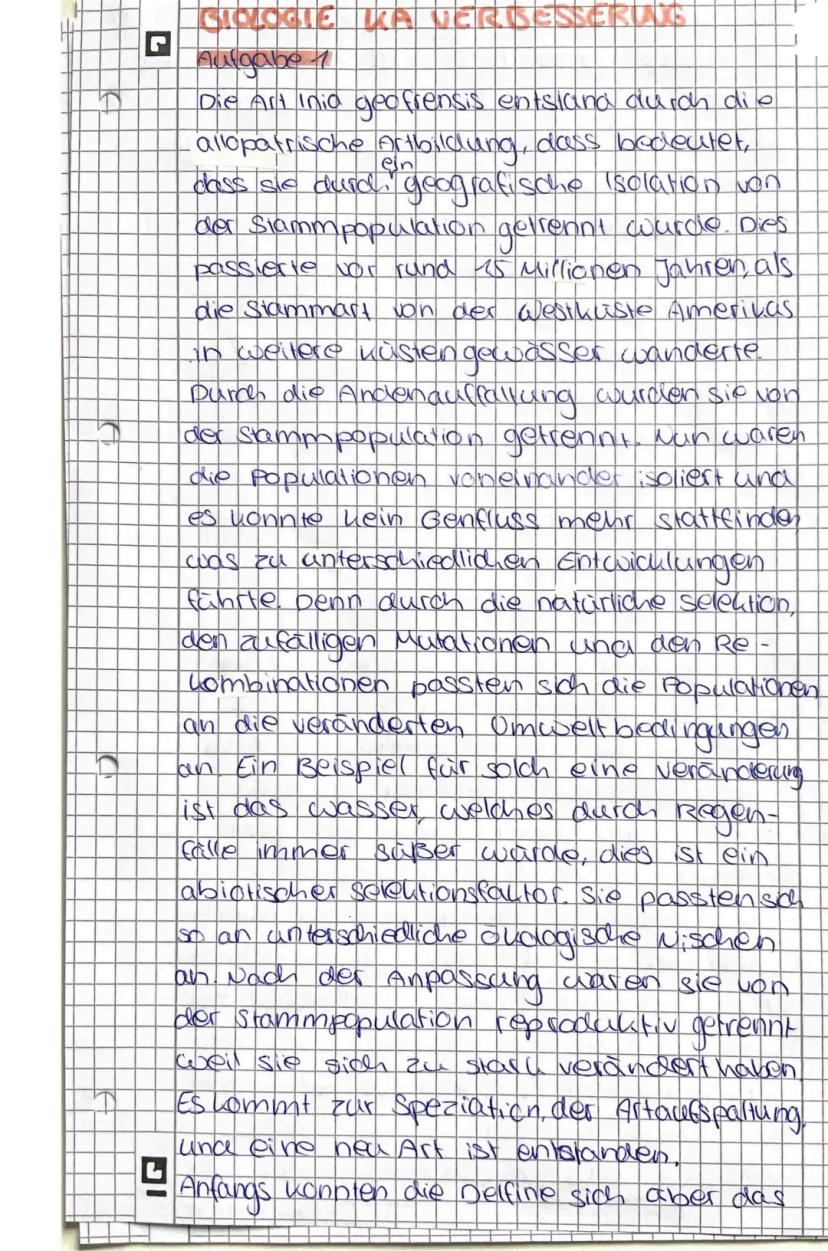 BIOLOGIE KA VERBESSERUNG
Aufgabe 1
Die Art Inia geofrensis entstand durch die
allopatrische Artbildung, dass bedeutet,
ein
dass sie durch geografische Isolation von
der Stammpopulation getrennt wurde. Dies
passierte vor rund 15 Millionen Jahren, als
die Stammart von der Westküste Amerikas
in weitere Küstengewässer wanderte.
Durch die Andenauffaltung wurden sie von
der Stammpopulation getrennt. Nun waren
die Populationen voneinander isoliert und
es konnte kein Genfluss mehr stattfinden,
was zu unterschiedlichen Entwicklungen
führte. Denn durch die natürliche Selektion,
den zufälligen Mutationen und den Re-
kombinationen passten sich die Populationen
an die veränderten Umweltbedingungen
an. Ein Beispiel für solch eine Veränderung
ist das Wasser, welches durch Regen-
fälle immer süßer wurde, dies ist ein
abiotischer Selektionsfaktor. Sie passten sich
so an unterschiedliche ökologische Nischen
an. Nach der Anpassung waren sie von
der Stammpopulation reproduktiv getrennt
weil sie sich zu stark verändert haben.
Es kommt zur Speziation, der Artaufspaltung,
und eine neu Art ist entstanden.
Anfangs konnten die Delfine sich aber das